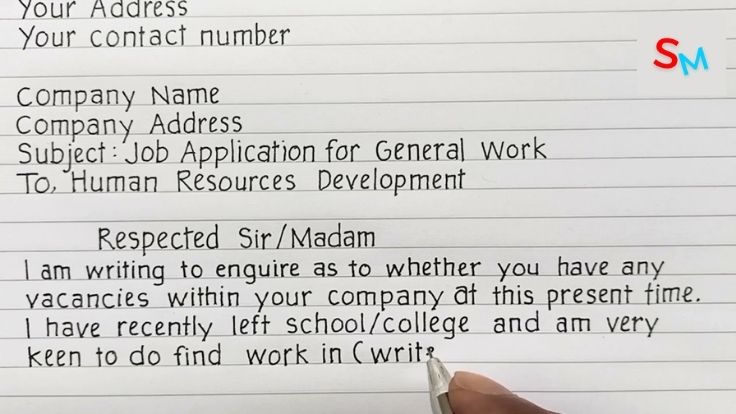 Your Address
Your contact number
SM
Company Name
Company Address
Subject: Job Application for General Work
To, Human Resources Development
Respected Sir/Madam
I am writing to enquire as to whether you have any
vacancies within your company at this present time.
I have recently left school/college and am very
keen to do find work in (writ